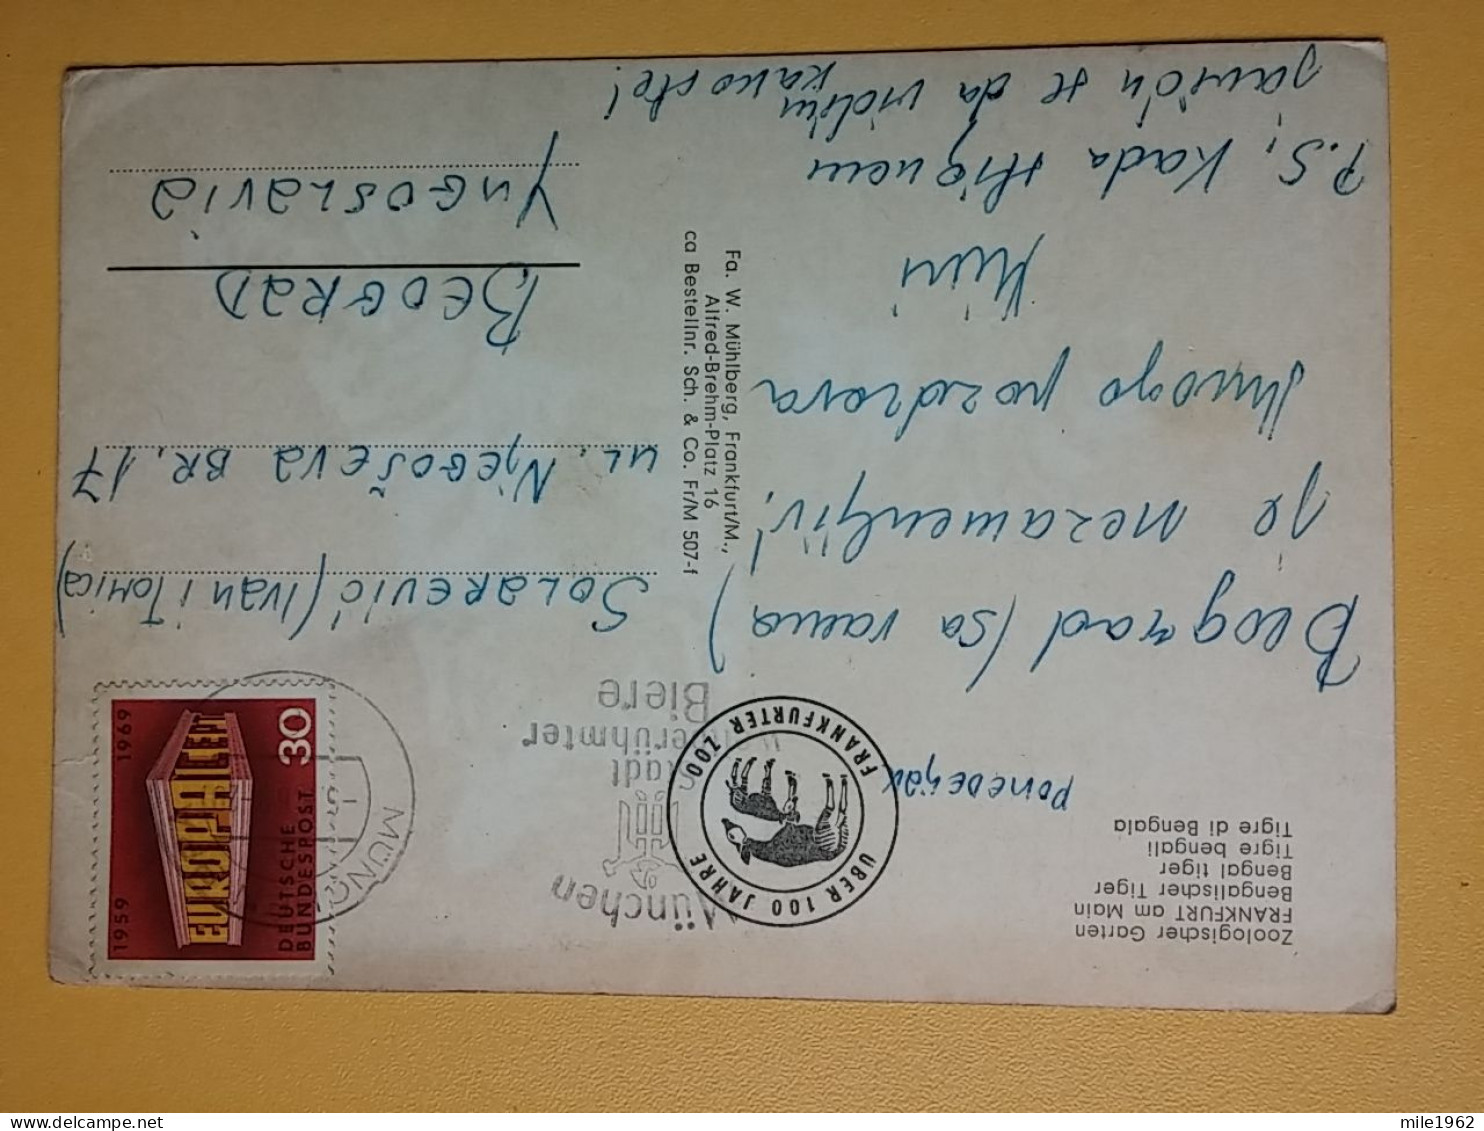 Zoologischer Garten
FRANKFURT am Main
Bengalischer Tiger
Bengal tiger
Tigre bengali
Tigre di Bengala
PONEDEJAK
Beograd (sa vama)
je nezamenljiv!
Mnogo pozdrava
P.S. Kada stignem
javiću se da vidim
kako ste!
ÜBER 100 JAHRE
FRANKFURTER ZOO
Fa. W. Mühlberg, Frankfurt/M.,
Alfred-Brehm-Platz 16
ca Bestellnr. Sch. & Co. Fr/M 507-f
München
Stadt
weltberühmter
Biere
MÜNC
1959
1969
EUROPA CEPT
DEUTSCHE
BUNDESPOST
30
SOLAREVIĆ (IVAN i TOMICA)
UL. NJEGOŠEVA BR. 17
BEOGRAD
YUGOSLAVIA
mile1962